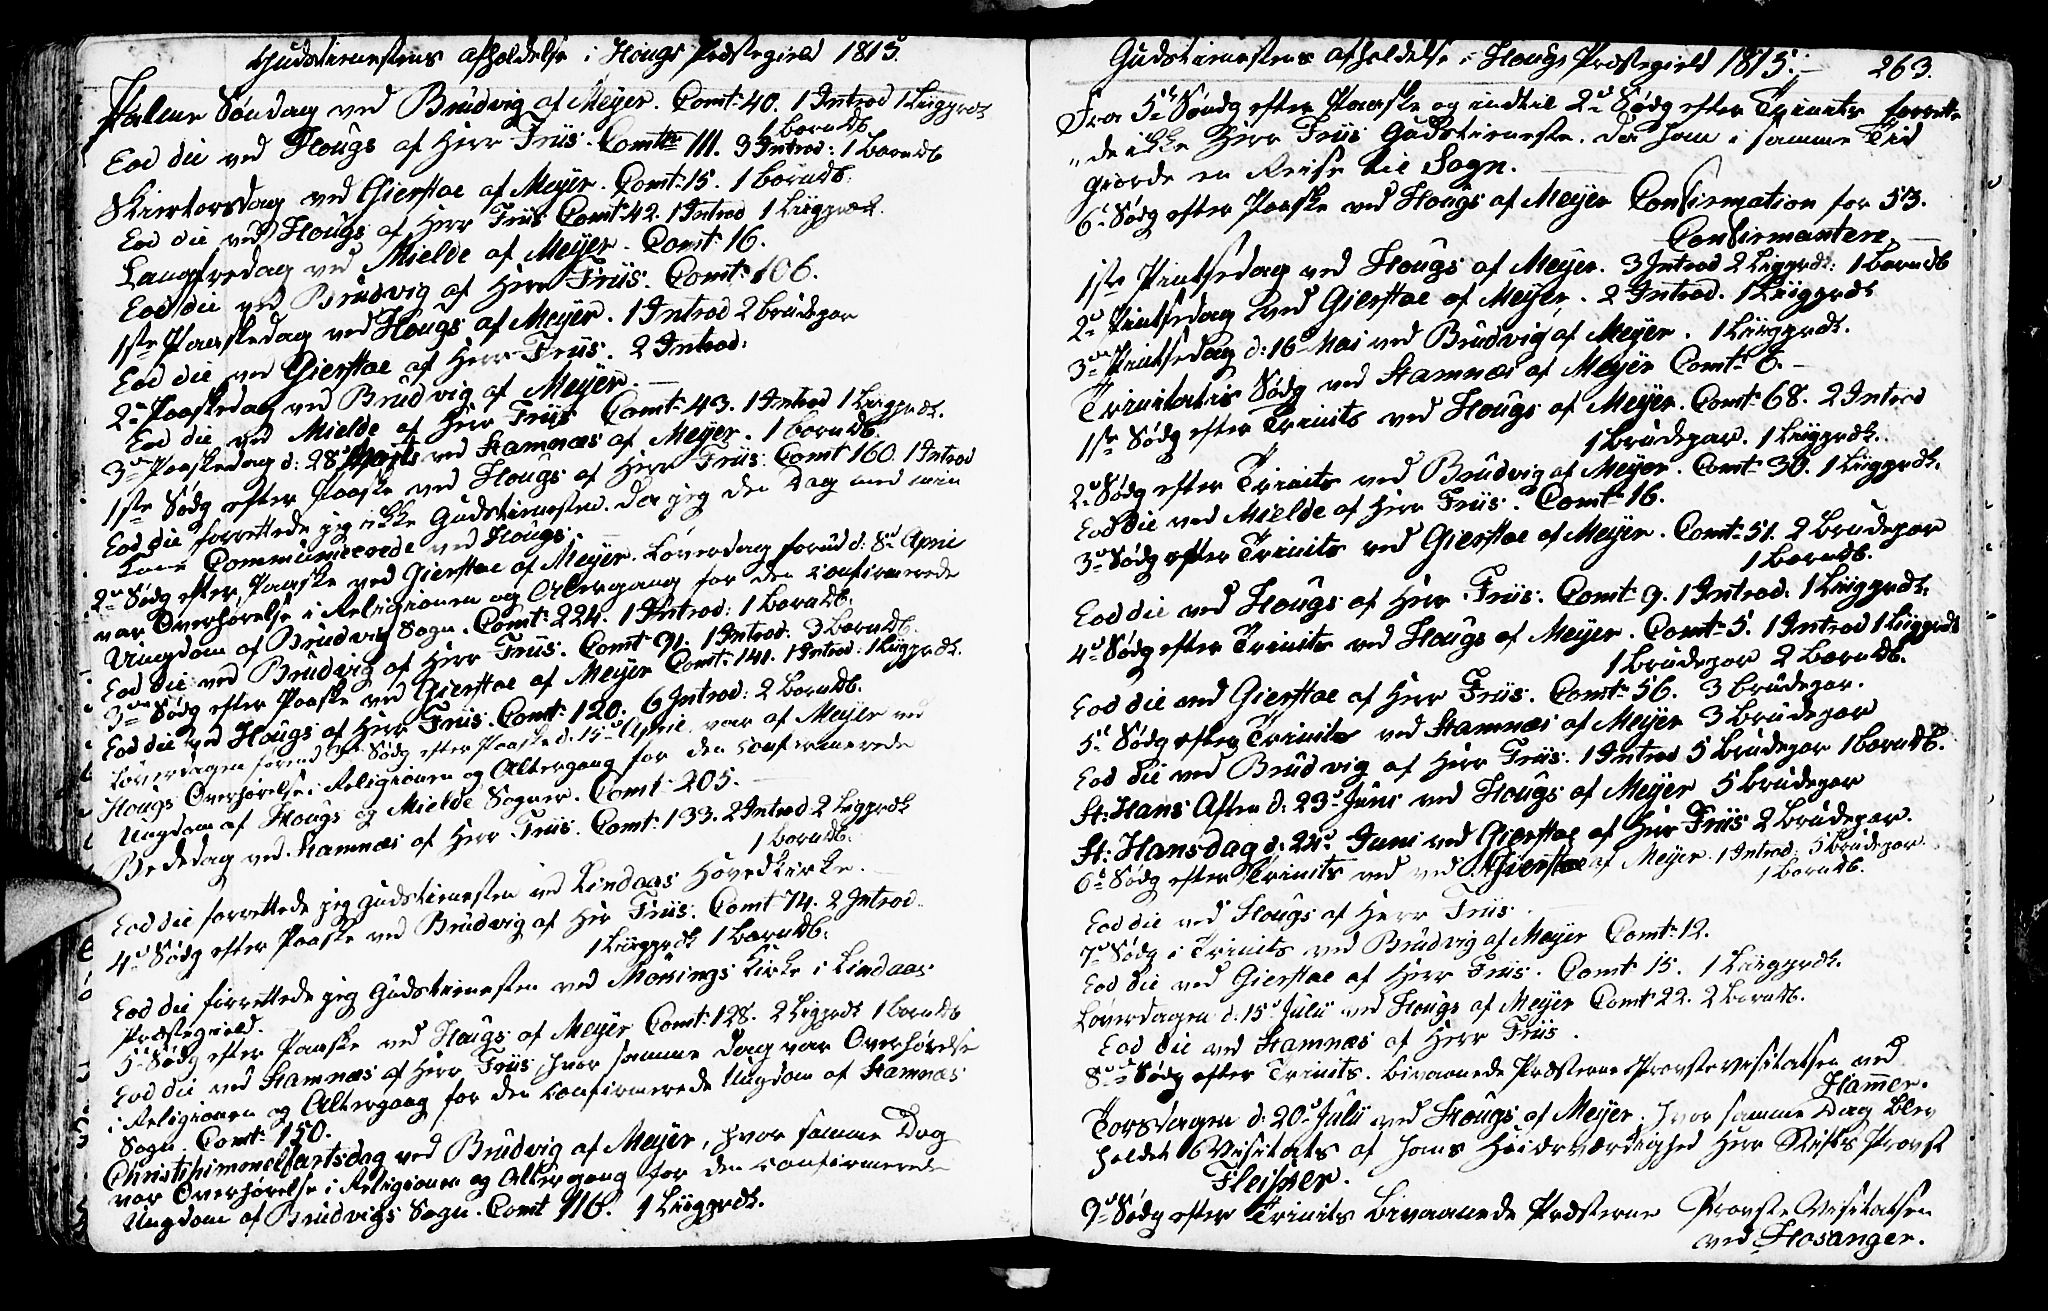 Gudstienestens afholdelse i Hougs Præstegield 1815.
Palme Søndag ved Brudvig af Meyer. Comt: 40. 1 Introd 1 Liiggrdk
1 barndb
Eod die ved Hougs af Herr Friis. Comt: 111. 3 Introd: 1 barndb
Skiertorsdag ved Gierstae af Meyer. Comt: 15. 1 barndb:
Eod die ved Hougs af Herr Friis Comt: 42. 1 Introd 1 Liiggrdk.
Langfredag ved Mielde af Meyer. Comt: 16.
Eod die ved Brudvig af Herr Friis. Comt: 106.
1ste Paaskedag ved Hougs af Meyer. 1 Introd 2 brudepar
Eod die ved Gierstae af Herr Friis. 2 Introd:
2den Paaskedag ved Brudvig af Meyer. —
Eod die ved Mielde af Herr Friis Comt: 43. 1 Introd 1 Liiggrdk.
3die Paaskedag d: 28de Marts ved Stamnæs af Meyer. 1 barndb.
1ste Sødg efter Paaske ved Hougs af Herr Friis. Comt 160. 1 Introd
Eod die forrettede jeg ikke Gudstienesten. da jeg den Dag med min
Kone Communicerede ved Hougs.
2den Sødg efter Paaske ved Gierstae af Meyer. Løverdag forud d: 8de April
var Overhørelse i Religionen og Altergang for den confirmerede
Ungdom af Brudvig Sogn. Comt: 224. 1 Introd: 1 barndb:
Eod die ved Brudvig af Herr Friis. Comt 91. 1 Introd. 3 barndb.
3die Sødg efter Paaske ved Gierstae af Meyer Comt: 141. 1 Introd: 1 Liiggrdk.
Eod die ved Hougs af Herr Friis. Comt: 120. 6 Introd: 2 barndb.
Løverdagen forud 3die Sødg efter Paaske d: 15de April var af Meyer ved
Hougs Overhørelse i Religionen og Altergang for den confirmerede
Ungdom af Hougs og Mielde Sogner. Comt: 205.
Bededag ved Stamnæs af Herr Friis. Comt: 133. 2 Introd 2 Liggrdk
1 barndb.
Eod die forrettede jeg Gudstienesten ved Lindaas Hovedkirke.
4de Sødg efter Paaske ved Brudvig af Hr Friis. Comt 74. 2 Introd.
1 Liiggrdk 1 barndb:
Eod die forrettede jeg Gudstienesten ved Mosings Kirke i Lindaas
Præstegield.
5te Sødg efter Paaske ved Hougs af Meyer Comt: 128. 2 Ligrdk 1 barndb
Eod die ved Stamnæs af Herr Friis, hvor samme Dag var Overhørelse
i Religionen og Altergang for den confirmerede Ungdom af Stamnæs
Sogn. Comt: 150.
Christihimmelfartsdag ved Brudvig af Meyer, hvor samme Dag
var Overhørelse i Religionen og Altergang for den confirmerede
Ungdom af Brudvigs Sogn. Comt 116. 1 Liiggrdk.
Gudstienestens afholdelse i Hougs Præstegield 1815. — 263.
Fra 5te Søndg efter Paaske og indtil 2den Sødg efter Trinits forrette
"de ikke Herr Friis Gudstieneste. da han i samme Tid
giorde en Reise til Sogn.
6te Sødg efter Paaske ved Hougs af Meyer Confirmation for 53.
Confirmantere.
1ste Pintsedag ved Hougs af Meyer. 3 Introd 2 Liggrdk: 1 barndb
2den Pintsedag ved Gierstae af Meyer. 2 Introd. 1 Liiggrdk
3die Pintsedag d: 16de Mai ved Brudvig af Meyer. 1 Liiggrdk.
Trinitatis Sødg ved Stamnæs af Meyer Comt: 6. —
1ste Sødg efter Trinits ved Hougs af Meyer. Comt: 68. 2 Introd
1 brudepar. 1 Liiggrdk.
2den Sødg efter Trinits ved Brudvig af Meyer. Comt: 30. 1 Liiggrdk.
Eod die ved Mielde af Herr Friis. Comt: 16.
3die Sødg efter Trinits ved Gierstae af Meyer. Comt: 51. 2 brudepar
1 barndb.
Eod die ved Hougs af Herr Friis. Comt: 9. 1 Introd. 1 Liiggrdk.
4de Sødg efter Trinits ved Hougs af Meyer. Comt: 5. 1 Introd 1 Liiggrdk
1 brudepar 2 barndb.
Eod die ved Gierstae af Herr Friis. Comt: 56. 3 brudepar.
5te Sødg efter Trinits ved Stamnæs af Meyer 3 brudepar
Eod die ved Brudvig af Herr Friis. 1 Introd 5 brudepar 1 barndb.
St: Hans Aften d: 23de Juni ved Hougs af Meyer 5 brudepar
St: Hansdag d: 24de Juni ved Gierstae af Herr Friis 2 brudepar.
6te Sødg efter Trinits ved ved Gierstae af Meyer. 1 Introd: 5 brudepar.
1 barndb.
Eod die ved Hougs af Herr Friis.
7de Sødg i Trinits ved Brudvig af Meyer Comt: 12.
Eod die ved Gierstae af Herr Friis. Comt 15. 1 Liiggrdk.
Løverdagen d: 15de Julii ved Hougs af Meyer Comt 22. 2 barndb.
Eod die ved Stamnæs af Herr Friis.
8de Sødg efter Trinits. bivaanede Præsterne Provstevisitatsen ved
Hamer.
Torsdagen d: 20de Julii ved Hougs af Meyer. hvor samme Dag blev
holdet Visitats af Hans Høiærværdighed Herr Stifts Provst
Fleischer.
9de Sødg efter Trinits bivaanede Præsterne Provste Visitatsen
ved Hosanger.